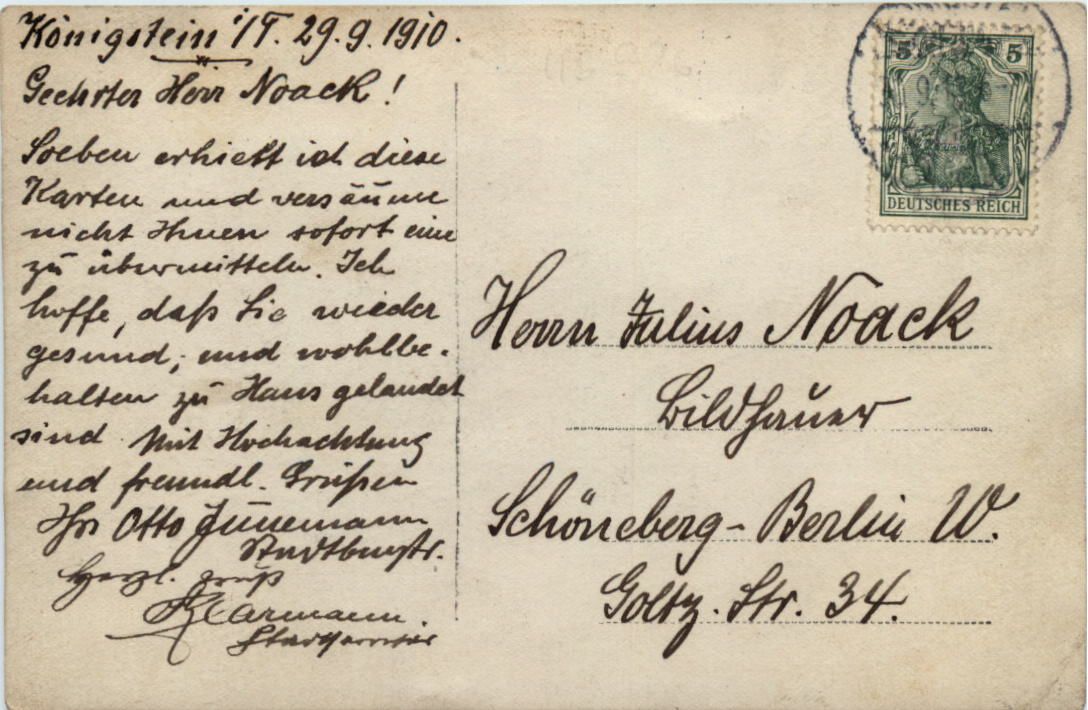 Königstein i/T. 29.9.1910.
Geehrter Herr Noack!
Soeben erhielt ich diese
Karten und versäume
nicht Ihnen sofort eine
zu übermitteln. Ich
hoffe, daß Sie wieder
gesund, und wohlbe-
halten zu Haus gelandet
sind. Mit Hochachtung
und freundl. Grüßen
Ihr Otto Junemann
Stadtbmstr.
Herzl. Gruß
5 5
DEUTSCHES REICH
Herrn Julius Noack
Bildhauer
Schöneberg-Berlin W.
Goltz. Str. 34.